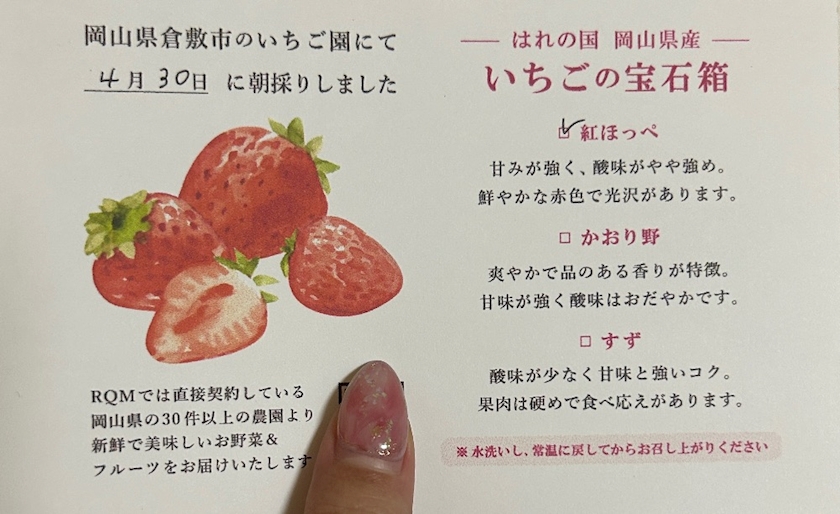 岡山県倉敷市のいちご園にて
4月30日 に朝採りしました
RQMでは直接契約している
岡山県の30件以上の農園より
新鮮で美味しいお野菜&
フルーツをお届けいたします
はれの国 岡山県産
いちごの宝石箱
紅ほっぺ
甘みが強く、酸味がやや強め。
鮮やかな赤色で光沢があります。
かおり野
爽やかで品のある香りが特徴。
甘味が強く酸味はおだやかです。
すず
酸味が少なく甘味と強いコク。
果肉は硬めで食べ応えがあります。
※水洗いし、常温に戻してからお召し上がりください